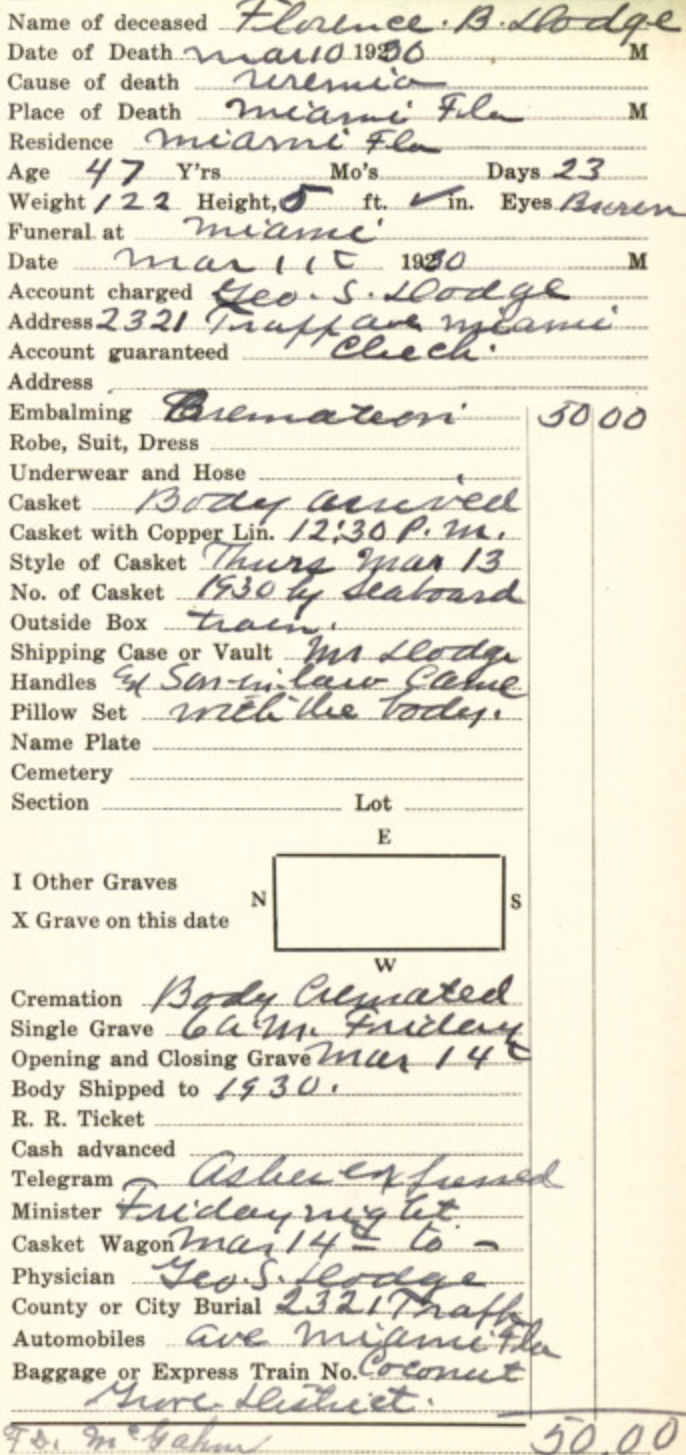 Name of deceased Florence. B. Dodge
Date of Death Mar 10 1930 M
Cause of death Uremia
Place of Death Miami Fla M
Residence Miami Fla
Age 47 Y'rs Mo's Days 23
Weight 122 Height, 5 ft. ✓ in. Eyes
Funeral at Miami
Date Mar 11t 1930 M
Account charged Geo. S. Dodge
Address 2321 Ave Miami
Account guaranteed Check.
Address
Embalming Cremation 50 00
Robe, Suit, Dress
Underwear and Hose
Casket Body arrived
Casket with Copper Lin. 12:30 P. M.
Style of Casket Thurs Mar 13
No. of Casket 1930 by Seaboard
Outside Box train.
Shipping Case or Vault Mr Dodge
Handles & Son-in-law Came
Pillow Set with the body.
Name Plate
Cemetery
Section Lot
E
I Other Graves
N S
X Grave on this date
W
Cremation Body Cremated
Single Grave 6 A. M. Friday
Opening and Closing Grave Mar 14t
Body Shipped to 1930.
R. R. Ticket
Cash advanced
Telegram Ashes expressed
Minister Friday night
Casket Wagon Mar 14t to -
Physician Geo. S. Dodge
County or City Burial 2321
Automobiles Ave Miami Fla
Baggage or Express Train No. Coconut
Grove District.
F. D. McGahn 50.00